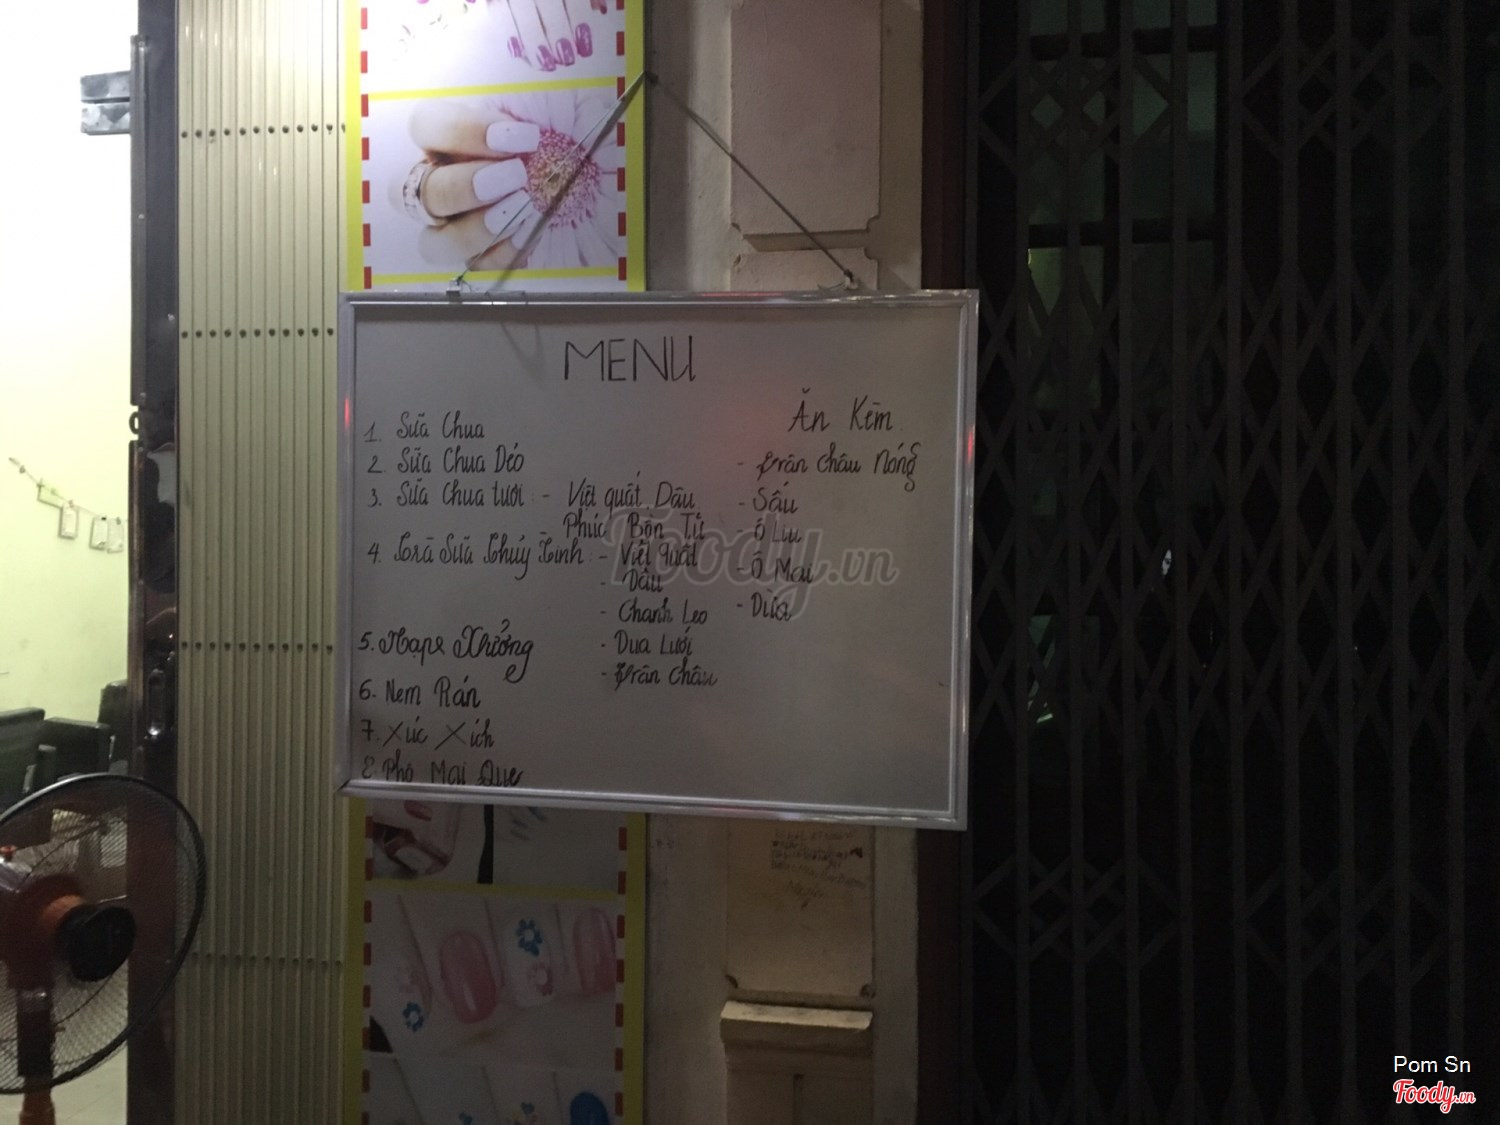 MENU
1. Sữa Chua
2. Sữa Chua Dẻo
3. Sữa Chua tươi : - Việt quất, Dâu
Phúc Bồn Tử
4. Trà Sữa Thúy Xinh : - Việt Quất
- Dâu
- Chanh Leo
- Dưa Lưới
- Trân Châu
5. Xưởng
6. Nem Rán
7. Xúc Xích
8. Phô Mai Que
Ăn Kèm
- Trân Châu Nóng
- Sấu
- Ô Liu
- Ô Mai
- Dừa
Foody.vn
Pom Sn
Foody.vn